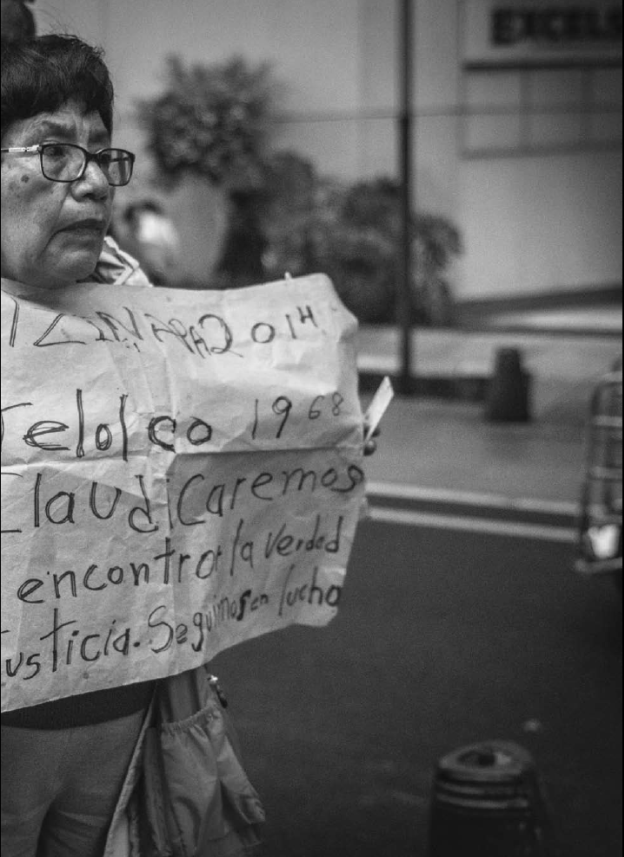 EXCELS
TZINAPA 2014
Telolco 1968
Claudicaremos
encontrar la verdad
Justicia. Seguimos en lucha